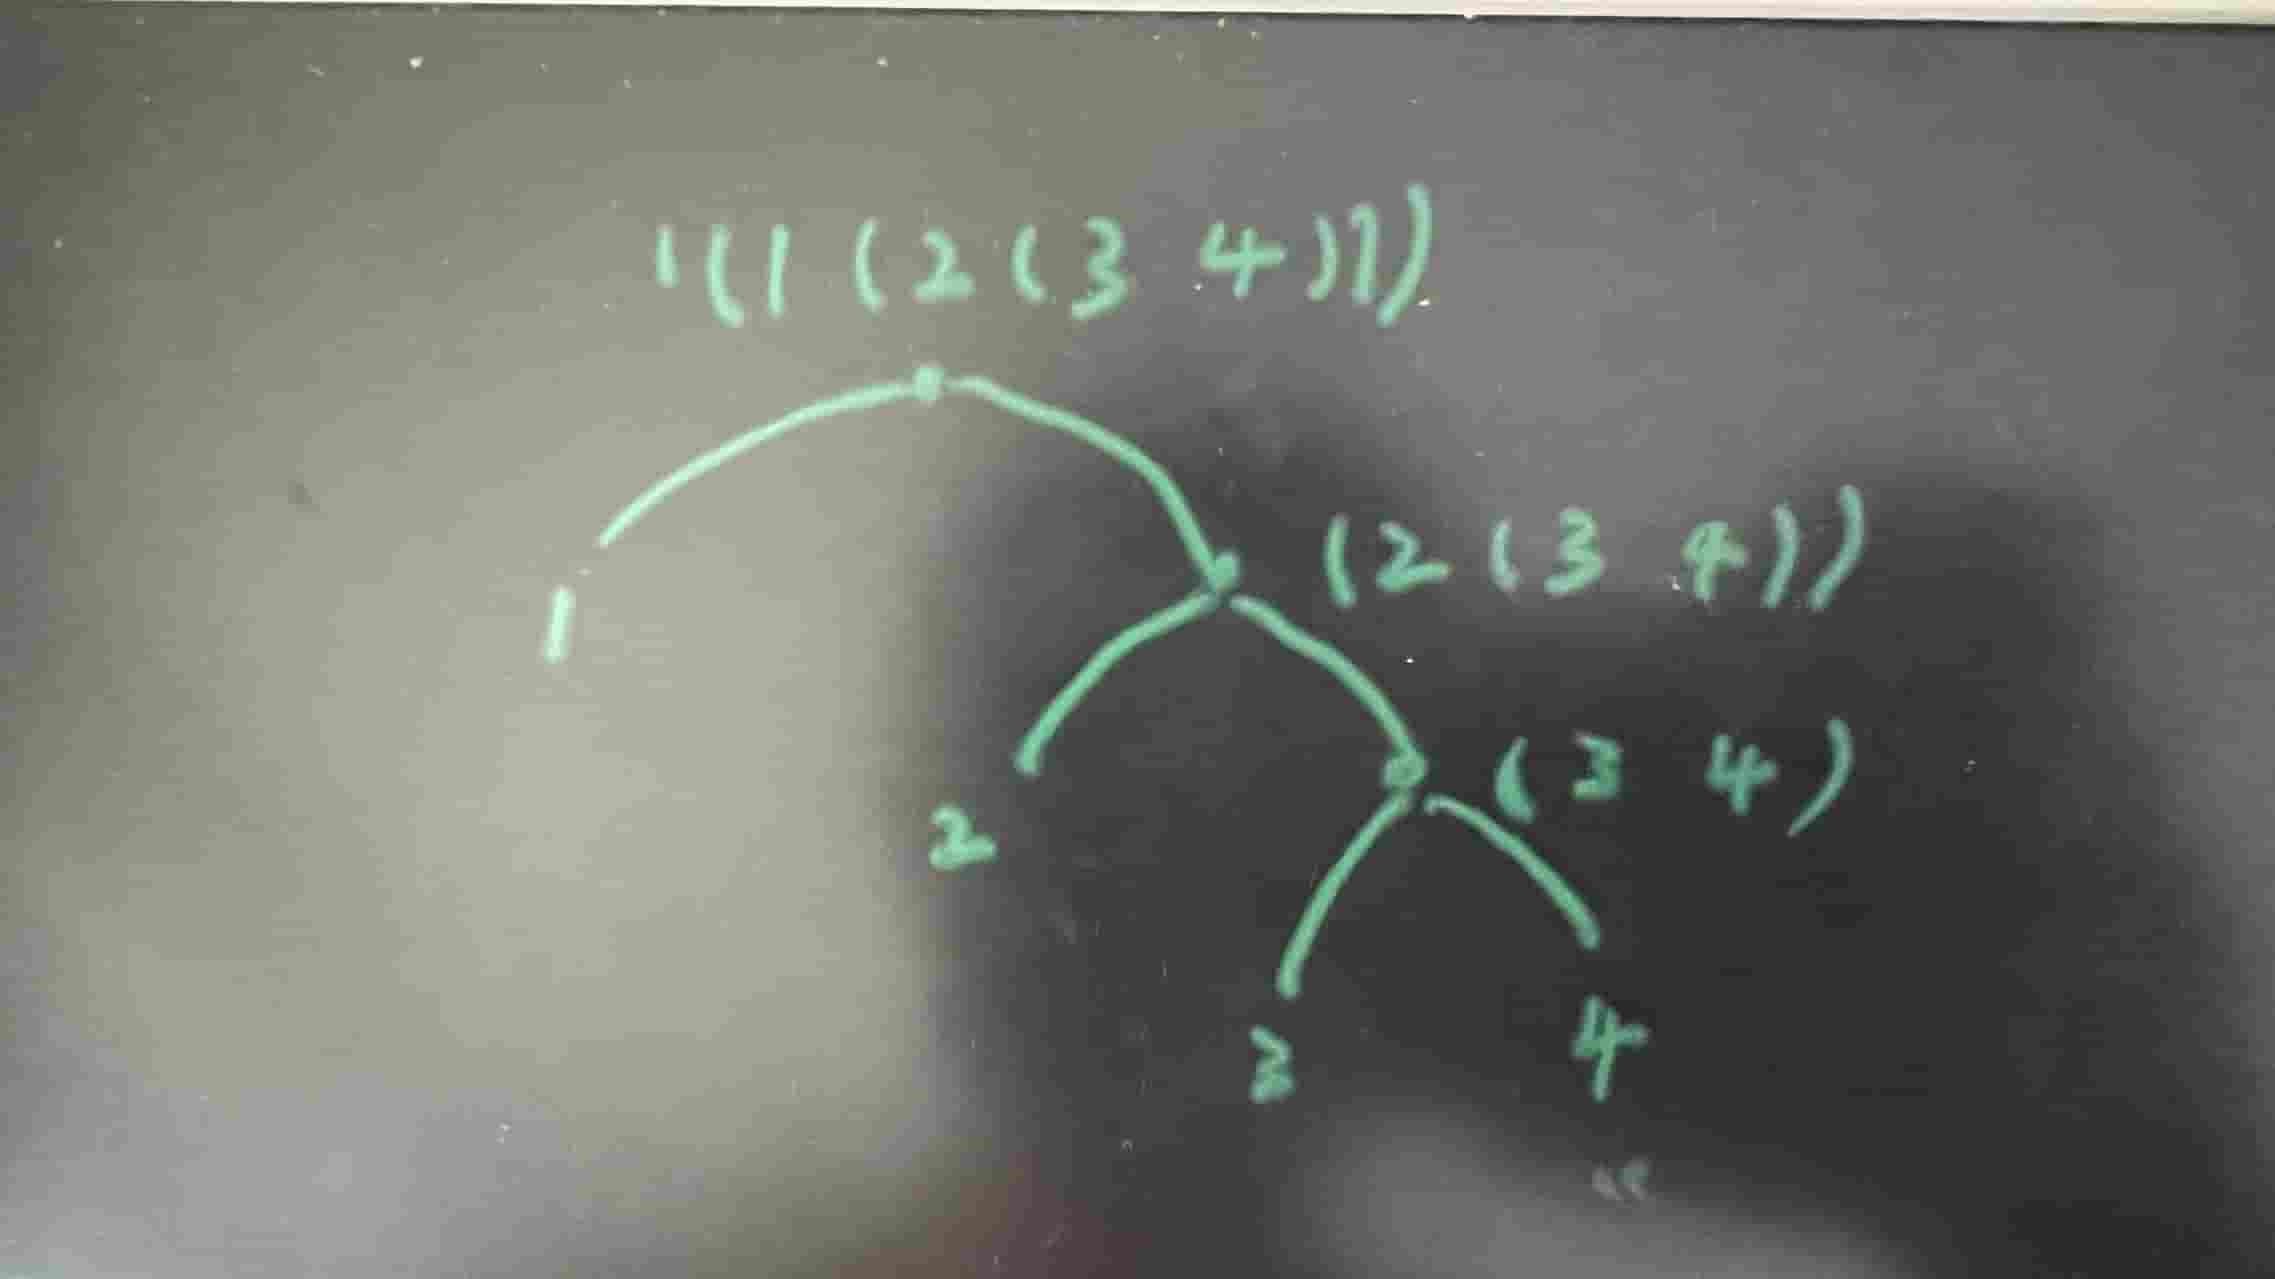 '(1 (2 (3 4)))
(2 (3 4))
1
(3 4)
2
3
4